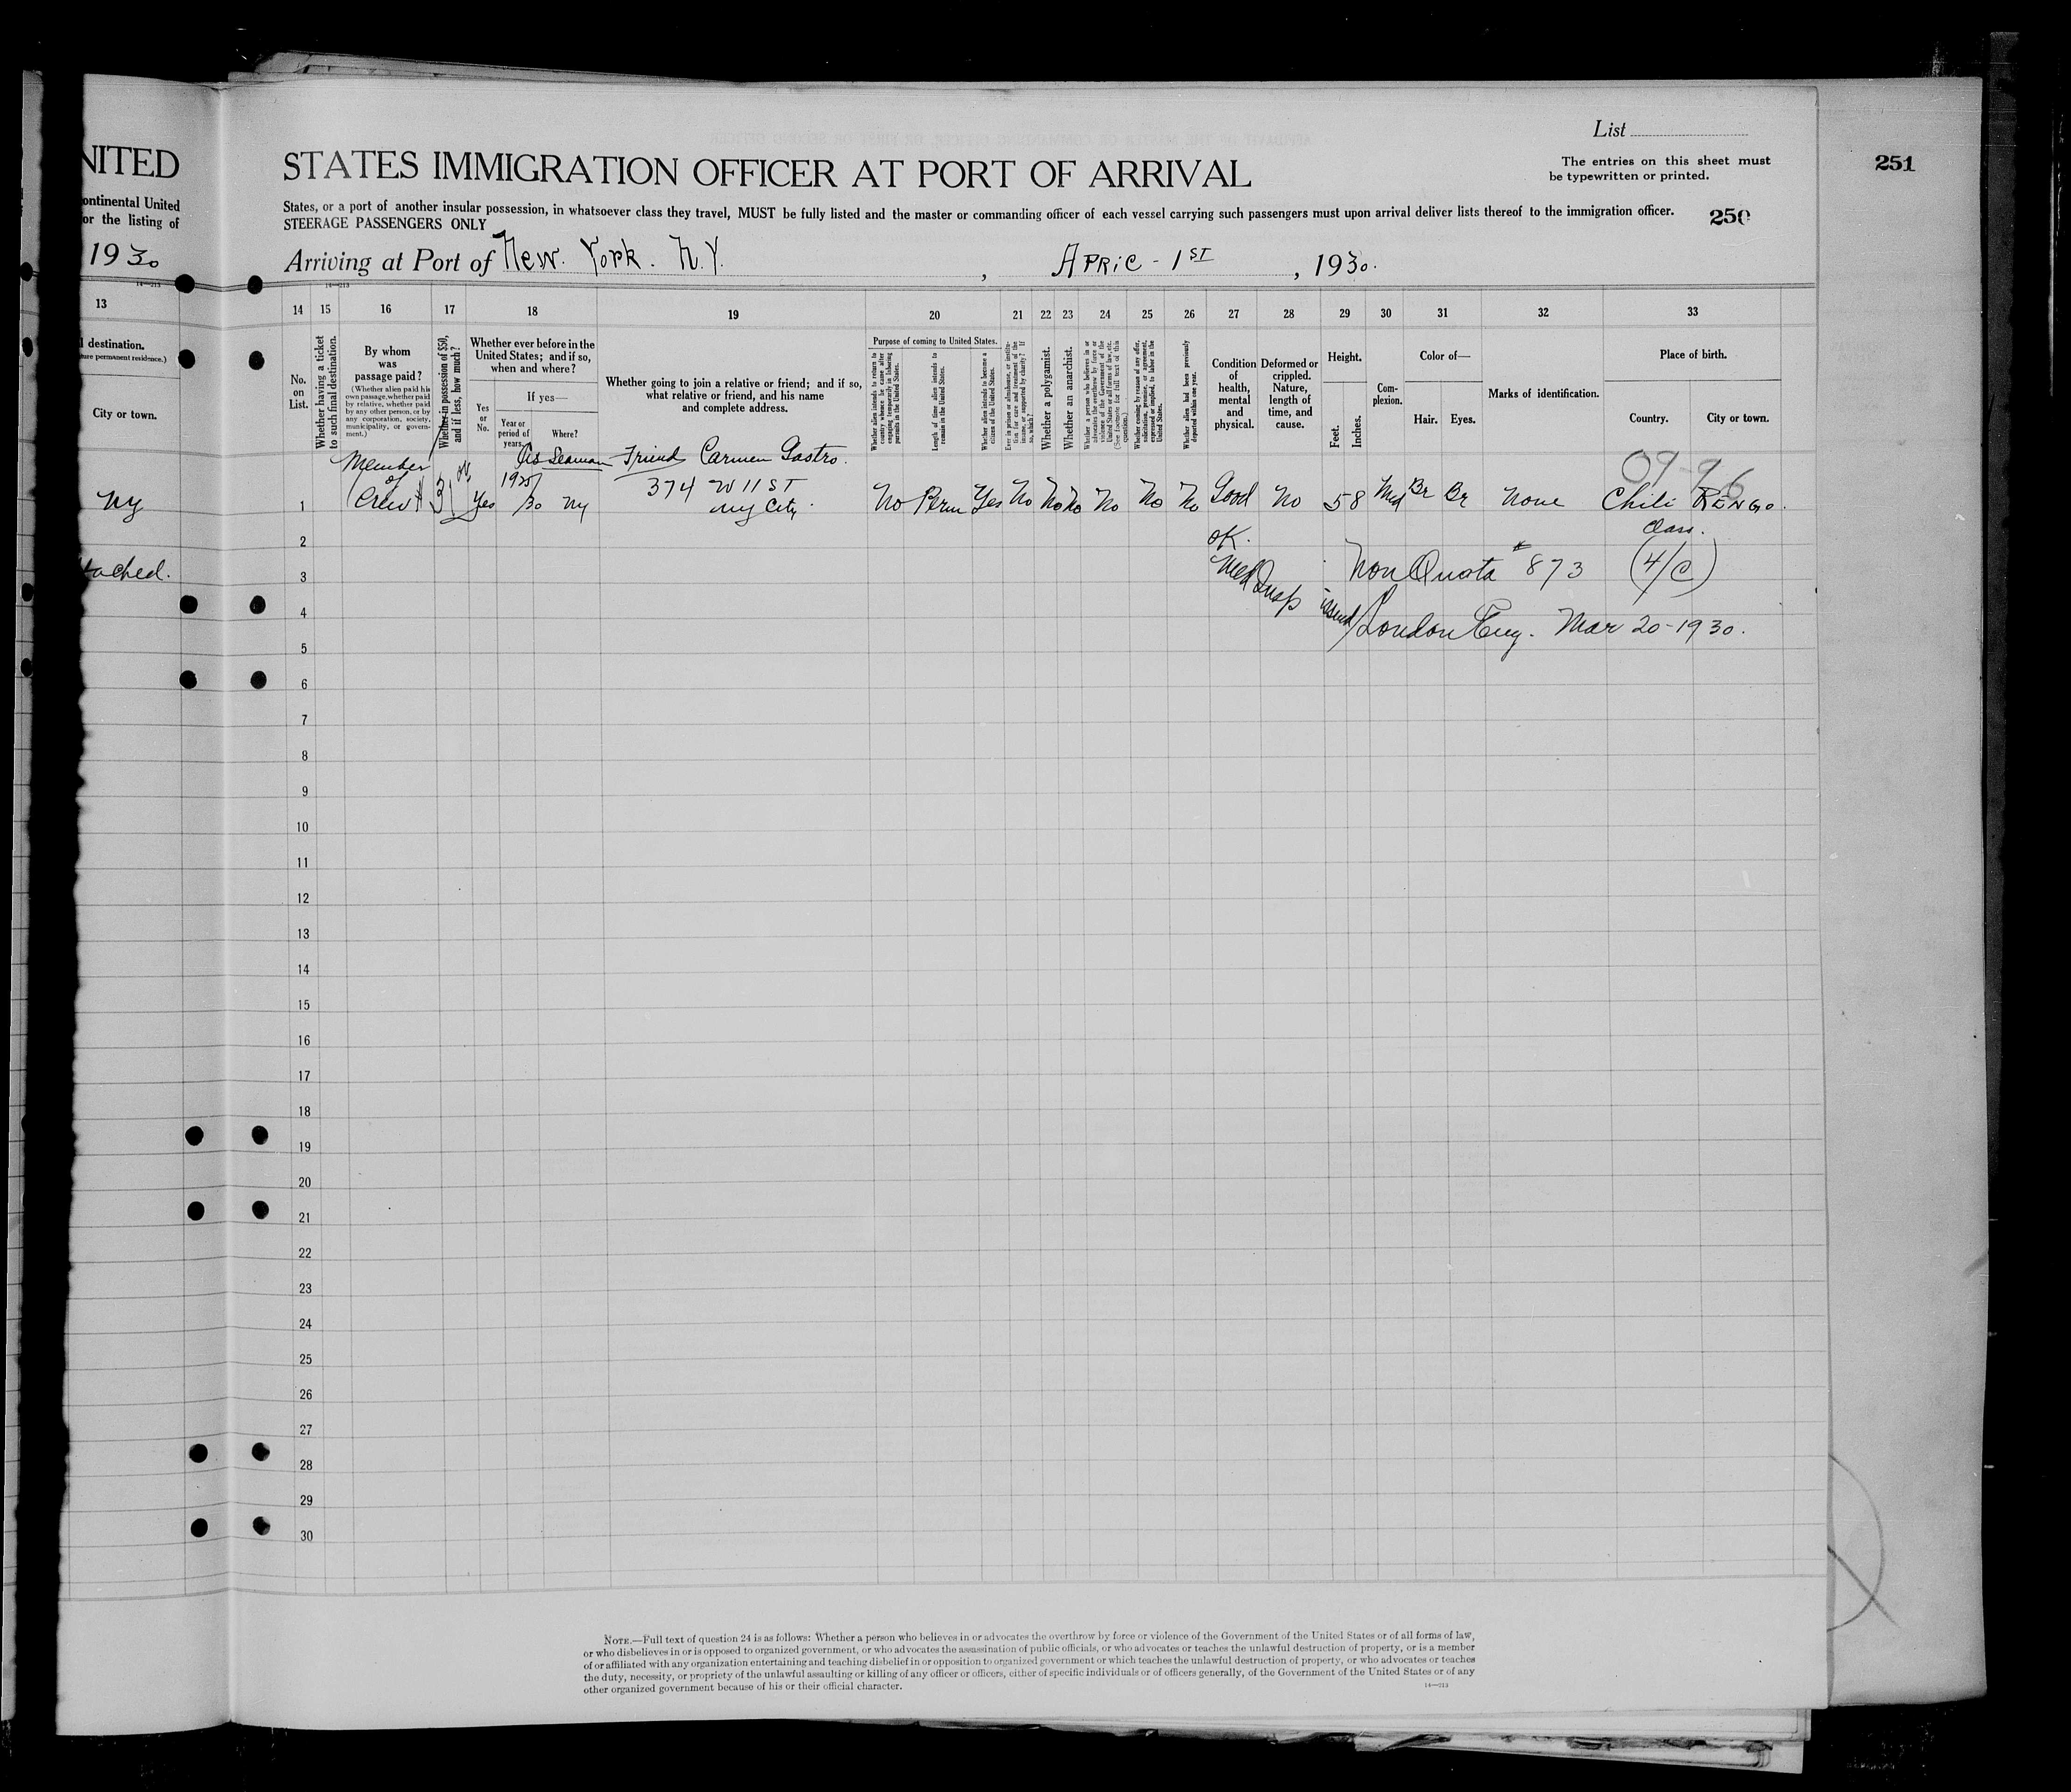 List
The entries on this sheet must
be typewritten or printed.
251
NITED
STATES IMMIGRATION OFFICER AT PORT OF ARRIVAL
ontinental United
or the listing of
States, or a port of another insular possession, in whatsoever class they travel, MUST be fully listed and the master or commanding officer of each vessel carrying such passengers must upon arrival deliver lists thereof to the immigration officer.
STEERAGE PASSENGERS ONLY
250
1930
Arriving at Port of New York. N.Y. , APRIC - 1ST , 1930.
14—213
14—213
13 14 15 16 17 18 19 20 21 22 23 24 25 26 27 28 29 30 31 32 33
l destination.
ture permanent residence.)
City or town.
No.
on
List.
Whether having a ticket
to such final destination.
By whom
was
passage paid?
(Whether alien paid his
own passage, whether paid
by relative, whether paid
by any other person, or by
any corporation, society,
municipality, or govern-
ment.)
Whether in possession of $50,
and if less, how much?
Whether ever before in the
United States; and if so,
when and where?
Yes
or
No.
If yes—
Year or
period of
years.
Where?
Whether going to join a relative or friend; and if so,
what relative or friend, and his name
and complete address.
Purpose of coming to United States.
Whether alien intends to return to
country whence he came after
engaging temporarily in laboring
pursuits in the United States.
Length of time alien intends to
remain in the United States.
Whether alien intends to become a
citizen of the United States.
Ever in prison or almshouse, or institu-
tion for care and treatment of the
insane, or supported by charity? If
so, which?
Whether a polygamist.
Whether an anarchist.
Whether a person who believes in or
advocates the overthrow by force or
violence of the Government of the
United States or all forms of law, etc.
(See footnote for full text of this
question.)
Whether coming by reason of any offer,
solicitation, promise, or agreement,
expressed or implied, to labor in the
United States.
Whether alien had been previously
deported within one year.
Condition
of
health,
mental
and
physical.
Deformed or
crippled.
Nature,
length of
time, and
cause.
Height.
Feet.
Inches.
Com-
plexion.
Color of—
Hair.
Eyes.
Marks of identification.
Place of birth.
Country.
City or town.
Member
of
Crew
As Seaman
Friend Carmen Gastro.
09-96
374 W 11 ST
NY City
NY
1 Yes 1925/30 NY No Perm Yes No No No No No No Good No 5 8 Med Br Br None Chili RENGO.
2
OK.
class.
tached.
3
Med Insp
Non Quota # 873 (4/C)
4
issued London Eng. Mar 20-1930.
5
6
7
8
9
10
11
12
13
14
15
16
17
18
19
20
21
22
23
24
25
26
27
28
29
30
NOTE.—Full text of question 24 is as follows: Whether a person who believes in or advocates the overthrow by force or violence of the Government of the United States or of all forms of law,
or who disbelieves in or is opposed to organized government, or who advocates the assassination of public officials, or who advocates or teaches the unlawful destruction of property, or is a member
of or affiliated with any organization entertaining and teaching disbelief in or opposition to organized government or which teaches the unlawful destruction of property, or who advocates or teaches
the duty, necessity, or propriety of the unlawful assaulting or killing of any officer or officers, either of specific individuals or of officers generally, of the Government of the United States or of any
other organized government because of his or their official character.
14—213